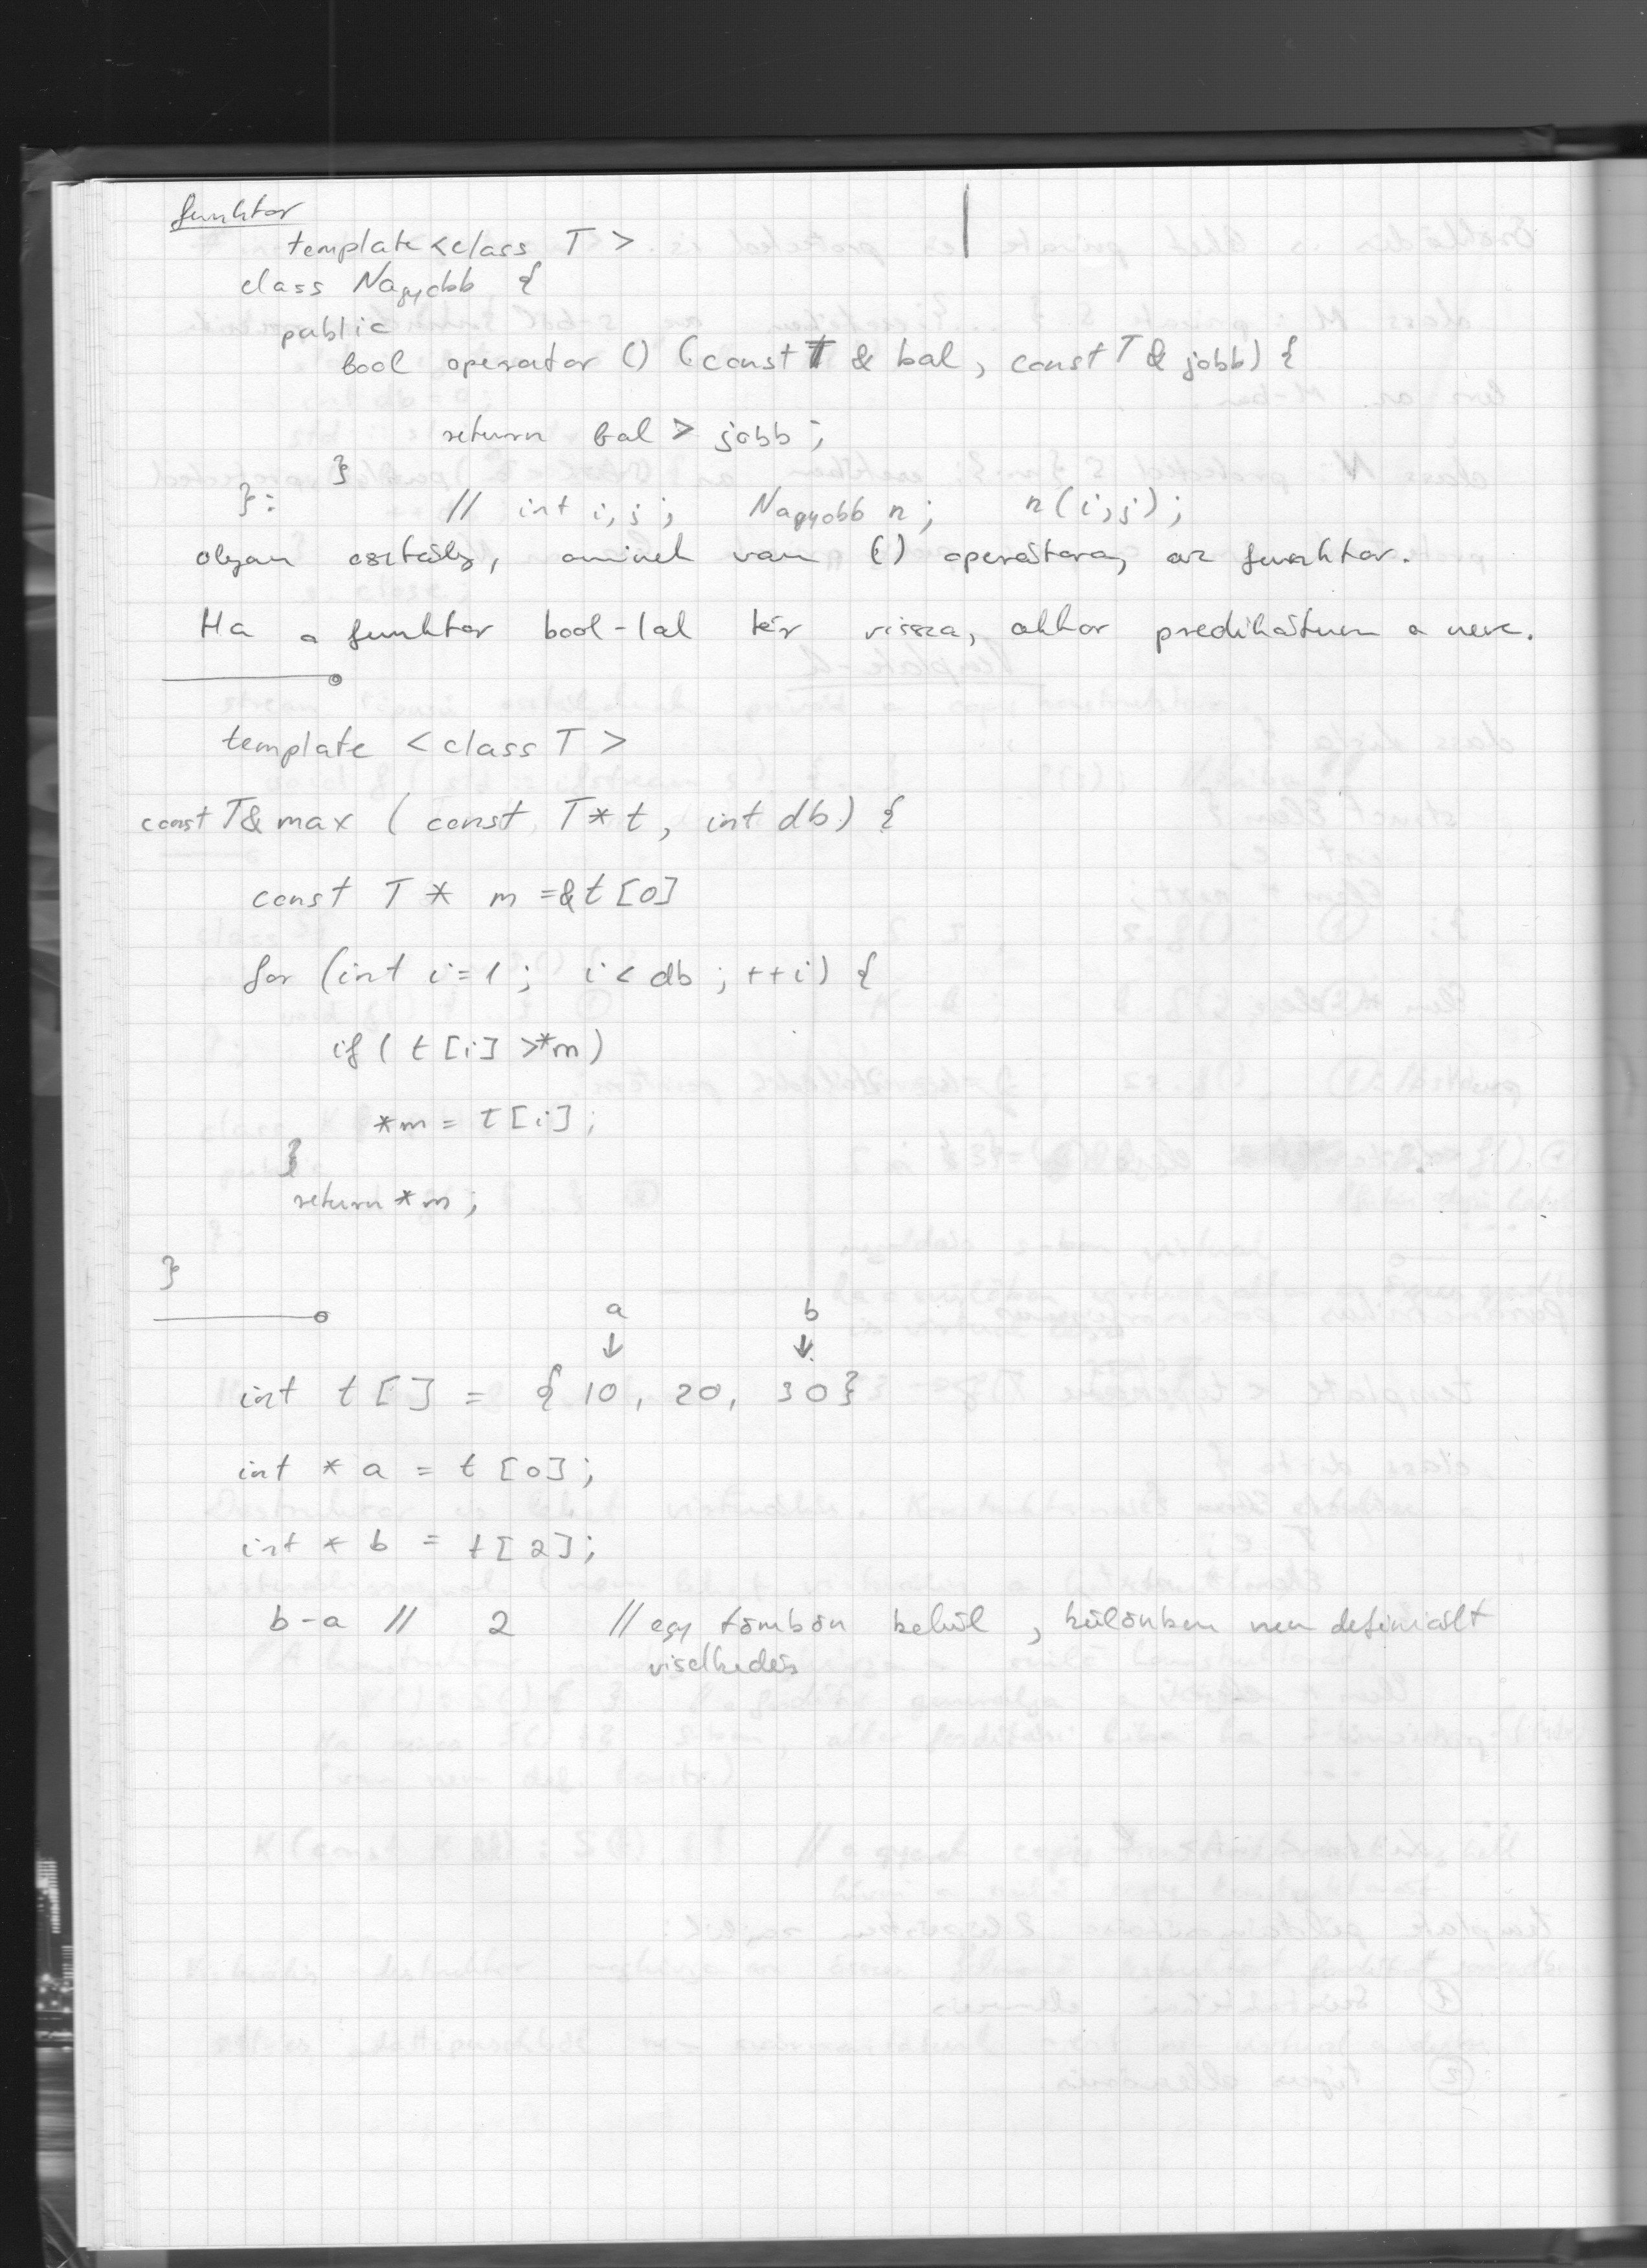 funktor
template <class T >
class Nagyobb {
public
bool operator () (const T & bal, const T & jobb) {
return bal > jobb ;
}
}: // int i, j ; Nagyobb n ; n(i,j) ;
olyan osztály, aminek van () operátora, az funktor.
Ha a funktor bool-lal tér vissza, akkor predikátum a neve.
template <class T >
const T& max ( const T* t, int db) {
const T * m =&t [0]
for (int i=1 ; i< db ; ++i) {
if ( t [i] >*m )
*m = t [i] ;
}
return *m ;
}
a b
↓ ↓
int t [ ] = { 10 , 20, 30}
int * a = t [0] ;
int * b = t [2] ;
b-a // 2 // egy tömbön belül , különben nem definiált
viselkedés